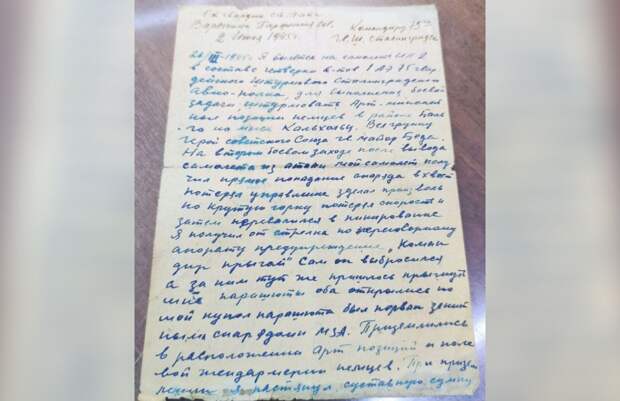 Гв. гвардии ст. л-та
Командиру 75го
Гв. ш. Сталинградск
2 июня 1945 г.
26/III-1945 г. Я вылетел на самолете ИЛ 2
в составе четверки с-тов 1 АЭ 75 гвар
дейского Штурмового Сталинградского
авио-полка, для выполнения боевой
задачи штурмовать Арт.-минометн
ные позиции немцев в районе Баль
га на мыса Кальхольц. Вел группу
герой советского Союза гв. майор Бода.
На втором боевом заходе после вывода
самолета из атаки мой самолет полу
чил прямое попадание снаряда в хвост
потерял управление зделал произволь
но крутую горку потерял скорость и
затем перевалился в пикирование
Я получил от стрелка по переговорному
апорату предупреждение „Коман
дир прыгай" Сам он выбросился
а за ним тут же пришлось прыгнуть
мне парашюты оба открылись но
мой купол парашюта был порван зенит
ными снарядами МЗА. Приземлились
в расположении Арт. позиций и поле
вой жандармерии немцев. При призем
лении я растянул суставную сумку